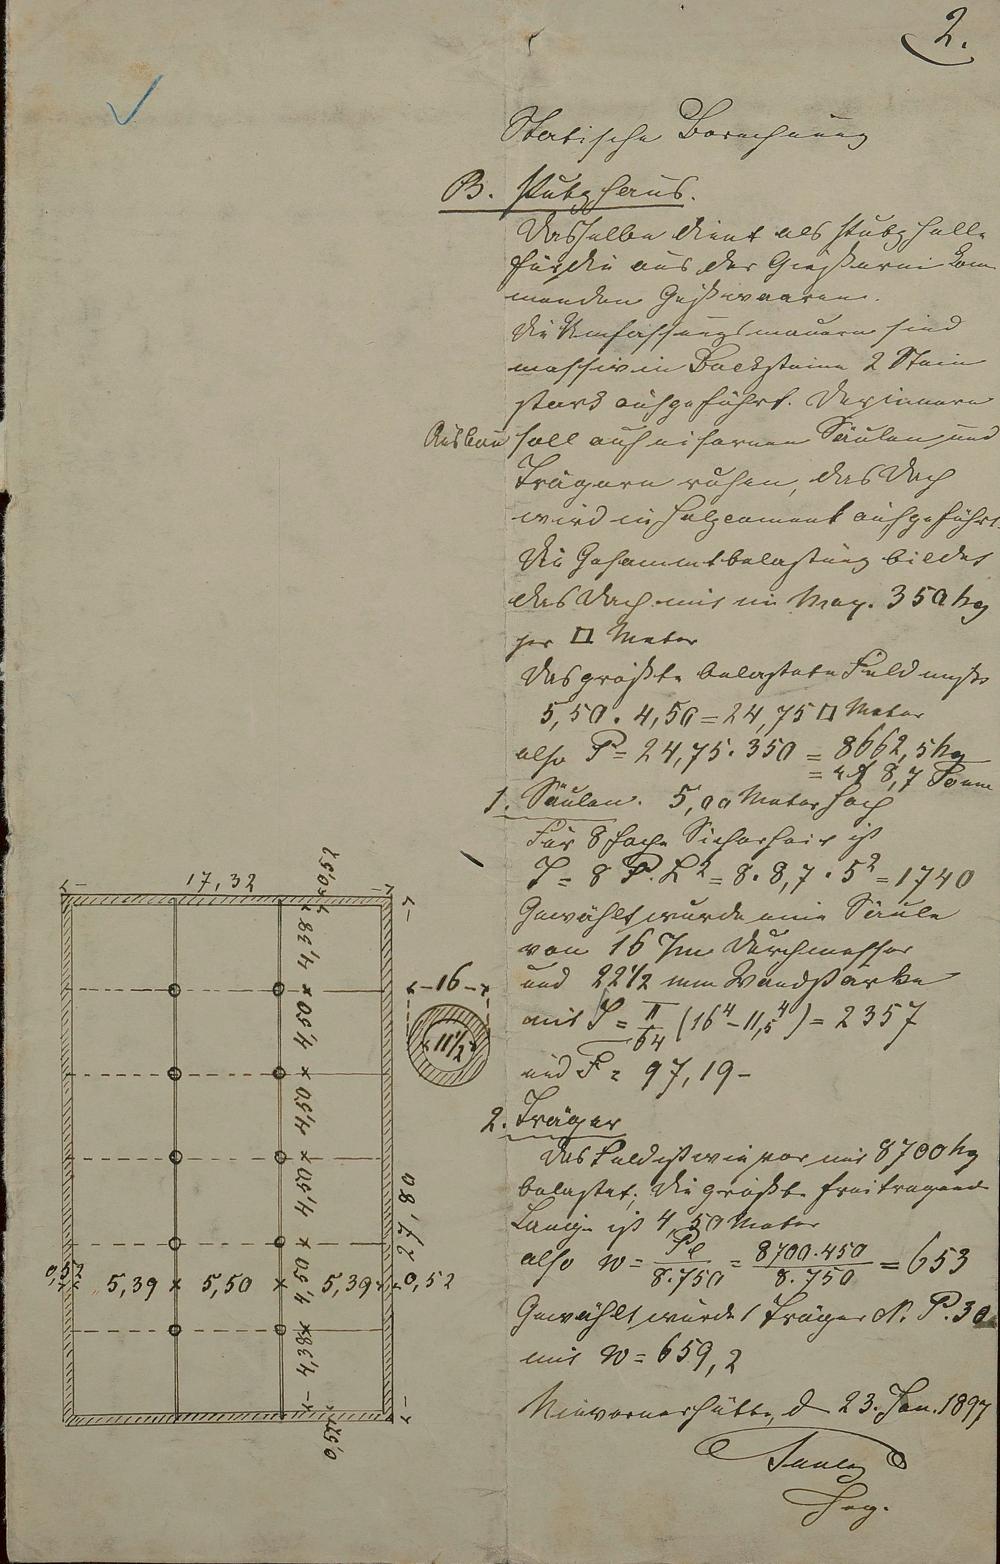 2.
Statische Berechnung
B. Putzhaus.
Dasselbe dient als Putzhalle
für die aus der Giesserei kom-
menden Gusswaaren.
Die Umfassungsmauern sind
massiv in Backsteine 2 Stein
stark ausgeführt. Der innere
Ausbau soll auf eisernen Säulen und
Trägern ruhen, das Dach
wird in Holzcement ausgeführt.
Die Gesammtbelastung bildet
das Dach mit im Max. 350 kg
per □ Meter
Das größte belastete Feld misst
5,50 . 4,50 = 24,75 □ Meter
also P = 24,75 . 350 = 8662,5 kg
= 8,7 Tonn
1. Säulen. 5,00 Meter hoch
Für 8 fache Sicherheit ist
J = 8 P. L² = 8 . 8,7 . 5² = 1740
Gewählt wurde eine Säule
von 16 Durchmesser
und 22 1/2 mm Wandstärke
mit J = π/64 (16⁴ - 11,5⁴) = 2357
und F = 97,19 -
2. Träger
Das Feld ist wie vor mit 8700 kg
belastet; die größte freitragende
Länge ist 4,50 Meter
also w = Pl/8.750 = 8700.450/8.750 = 653
Gewählt wurde 1 Träger N. P. 30
mit w = 659,2
d 23. Jan. 1897
17,32
0,52
4,38
4,50
4,50
4,50
4,50
4,38
0,52
27,80
0,52
5,39 × 5,50 × 5,39
0,52
16
11 1/2